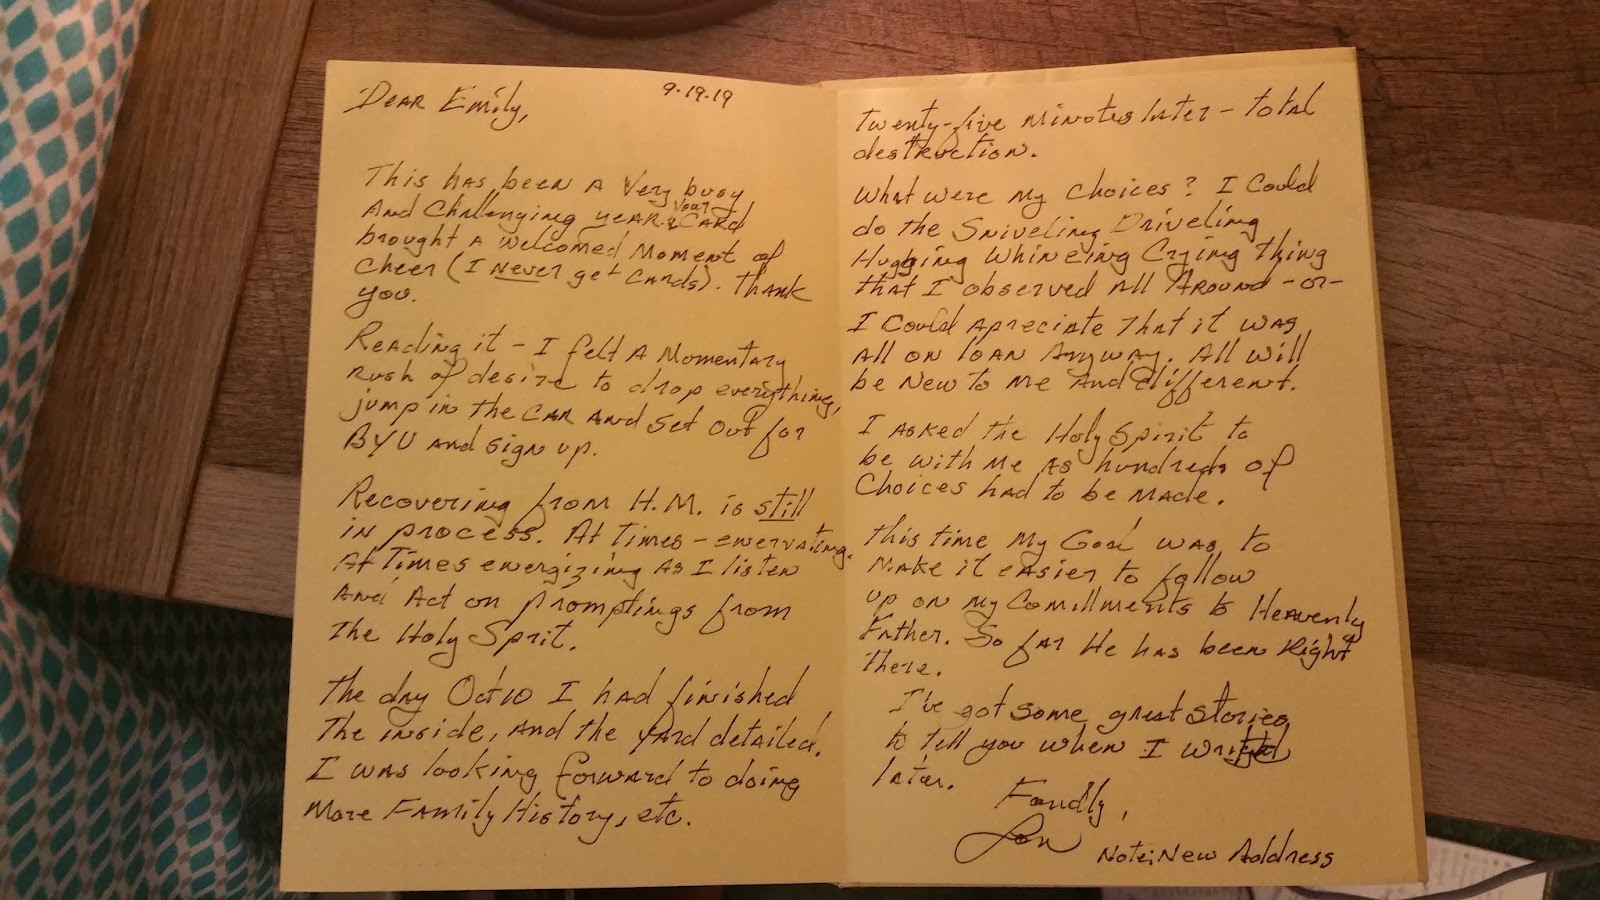 9.19.19
Dear Emily,
This has been a very busy
and challenging year & your card
brought a welcomed moment of
cheer (I never get cards). Thank
you.
Reading it - I felt a momentary
rush of desire to drop everything,
jump in the car and set out for
BYU and sign up.
Recovering from H.M. is still
in process. At times - enervating.
At times energizing as I listen
and act on promptings from
the Holy Sprit.
The day Oct 10 I had finished
the inside, and the yard detailed.
I was looking forward to doing
more Family History, etc.
Twenty-five minotes later - total
destruction.
What were my choices? I could
do the Sniveling Driveling
Hugging Whineing Crying thing
that I observed all around -or-
I could apreciate that it was
all on loan anyway. All will
be new to me and different.
I asked the Holy Spirit to
be with me as hundreds of
choices had to be made.
This time my Goal was to
make it easier to follow
up on my Comillments to Heavenly
Father. So far He has been right
there.
I've got some great stories
to tell you when I
later.
Fondly,
Lon
Note: New Address